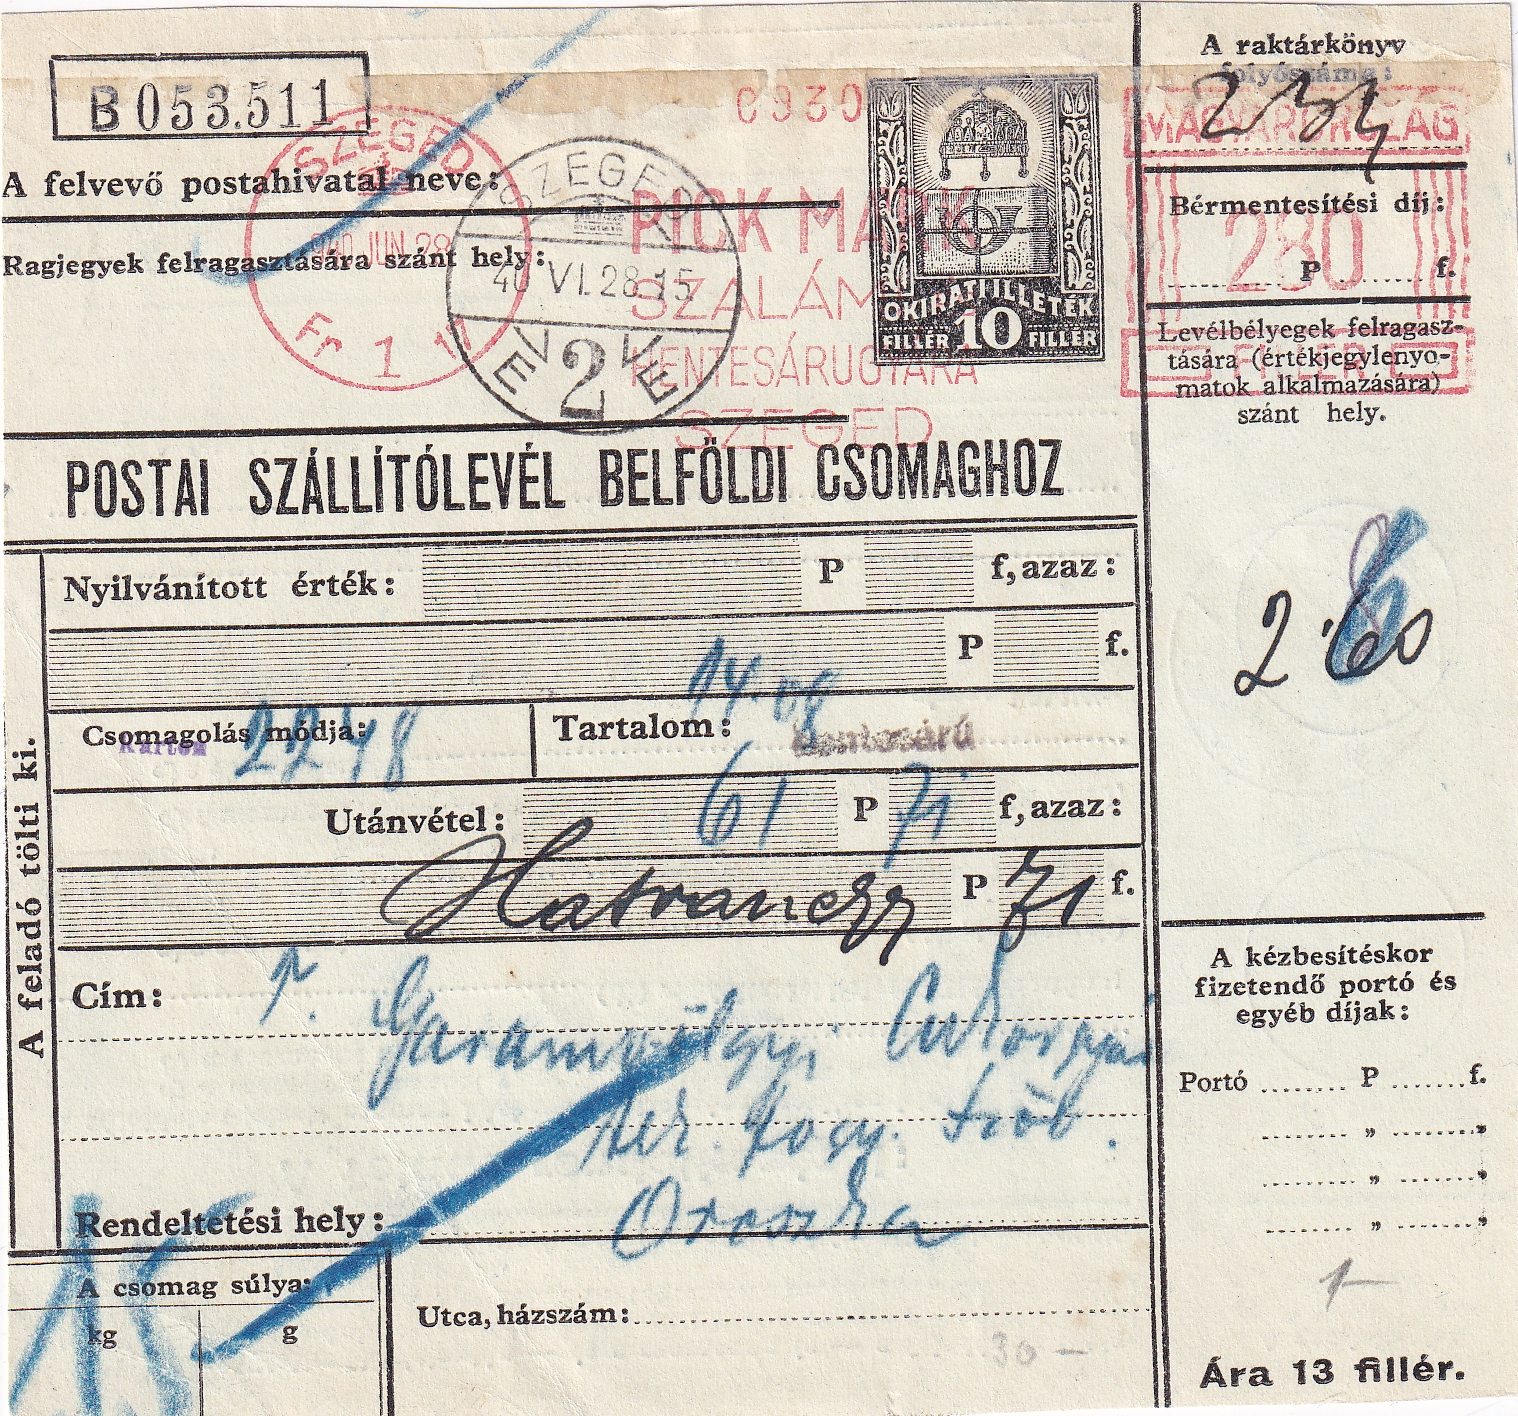 B 053.511
A raktárkönyv
folyószáma:
234
A felvevő postahivatal neve:
SZEGED
940 JUN 28
Fr 1 17
SZEGED
40 VI. 28 15
2
0930
PICK MÁRK
SZALÁMI
HENTESÁRUGYÁRA
SZEGED
OKIRATI ILLETÉK
FILLÉR 10 FILLÉR
MAGYARORSZÁG
280
FILLÉR
Bérmentesítési díj:
P f.
Ragjegyek felragasztására szánt hely:
Levélbélyegek felragasz-
tására (értékjegylenyo-
matok alkalmazására)
szánt hely.
POSTAI SZÁLLÍTÓLEVÉL BELFÖLDI CSOMAGHOZ
A feladó tölti ki.
Nyilvánított érték: P f, azaz:
P f.
Csomagolás módja: Karton 2248
Tartalom: Hentesárú
14.08
Utánvétel: 61 P 71 f, azaz:
Hatvanegy P 71 f.
Cím:
Garamvölgyi
Rendeltetési hely: Oroszka
A csomag súlya:
kg g
15
Utca, házszám:
30 –
A kézbesítéskor
fizetendő portó és
egyéb díjak:
Portó P f.
„ „
„ „
„ „
Ára 13 fillér.